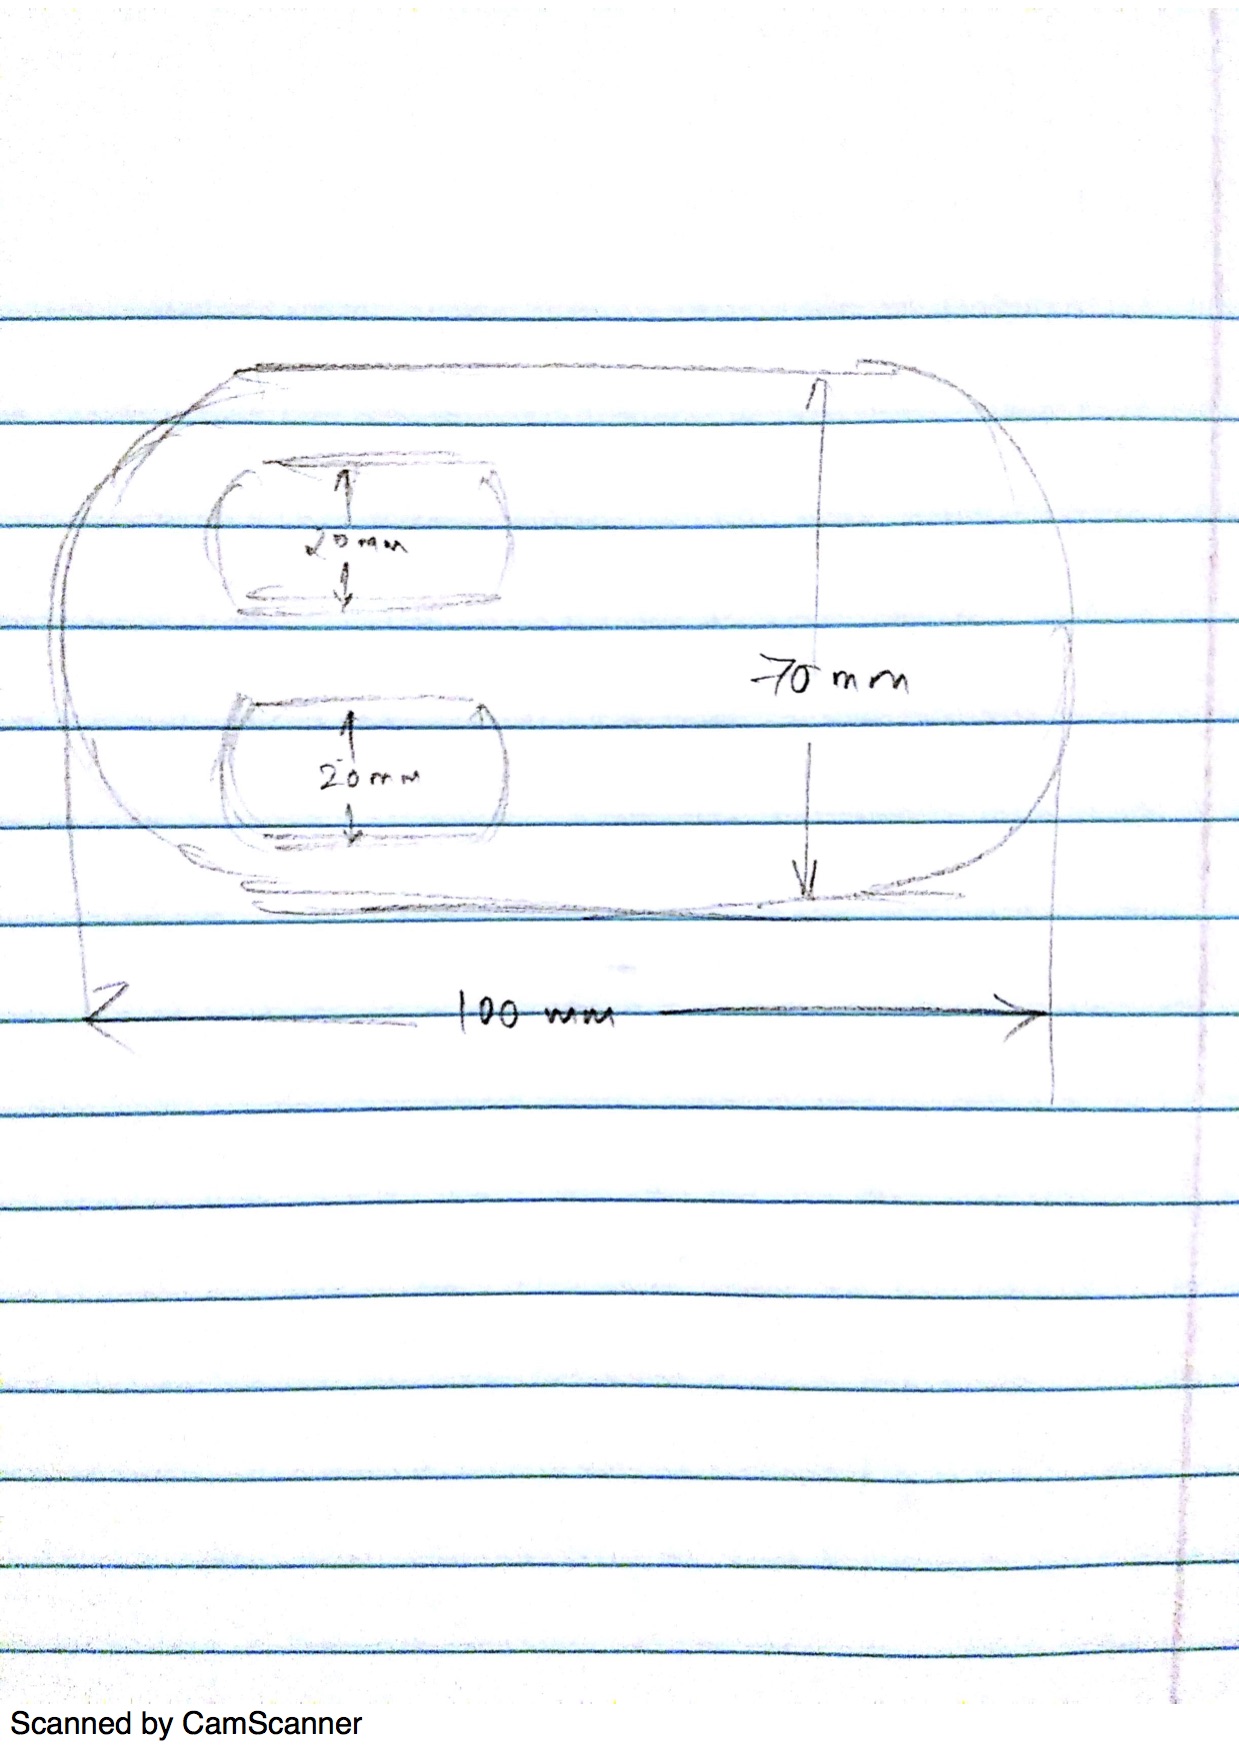 20mm
70mm
20mm
100 mm
Scanned by CamScanner